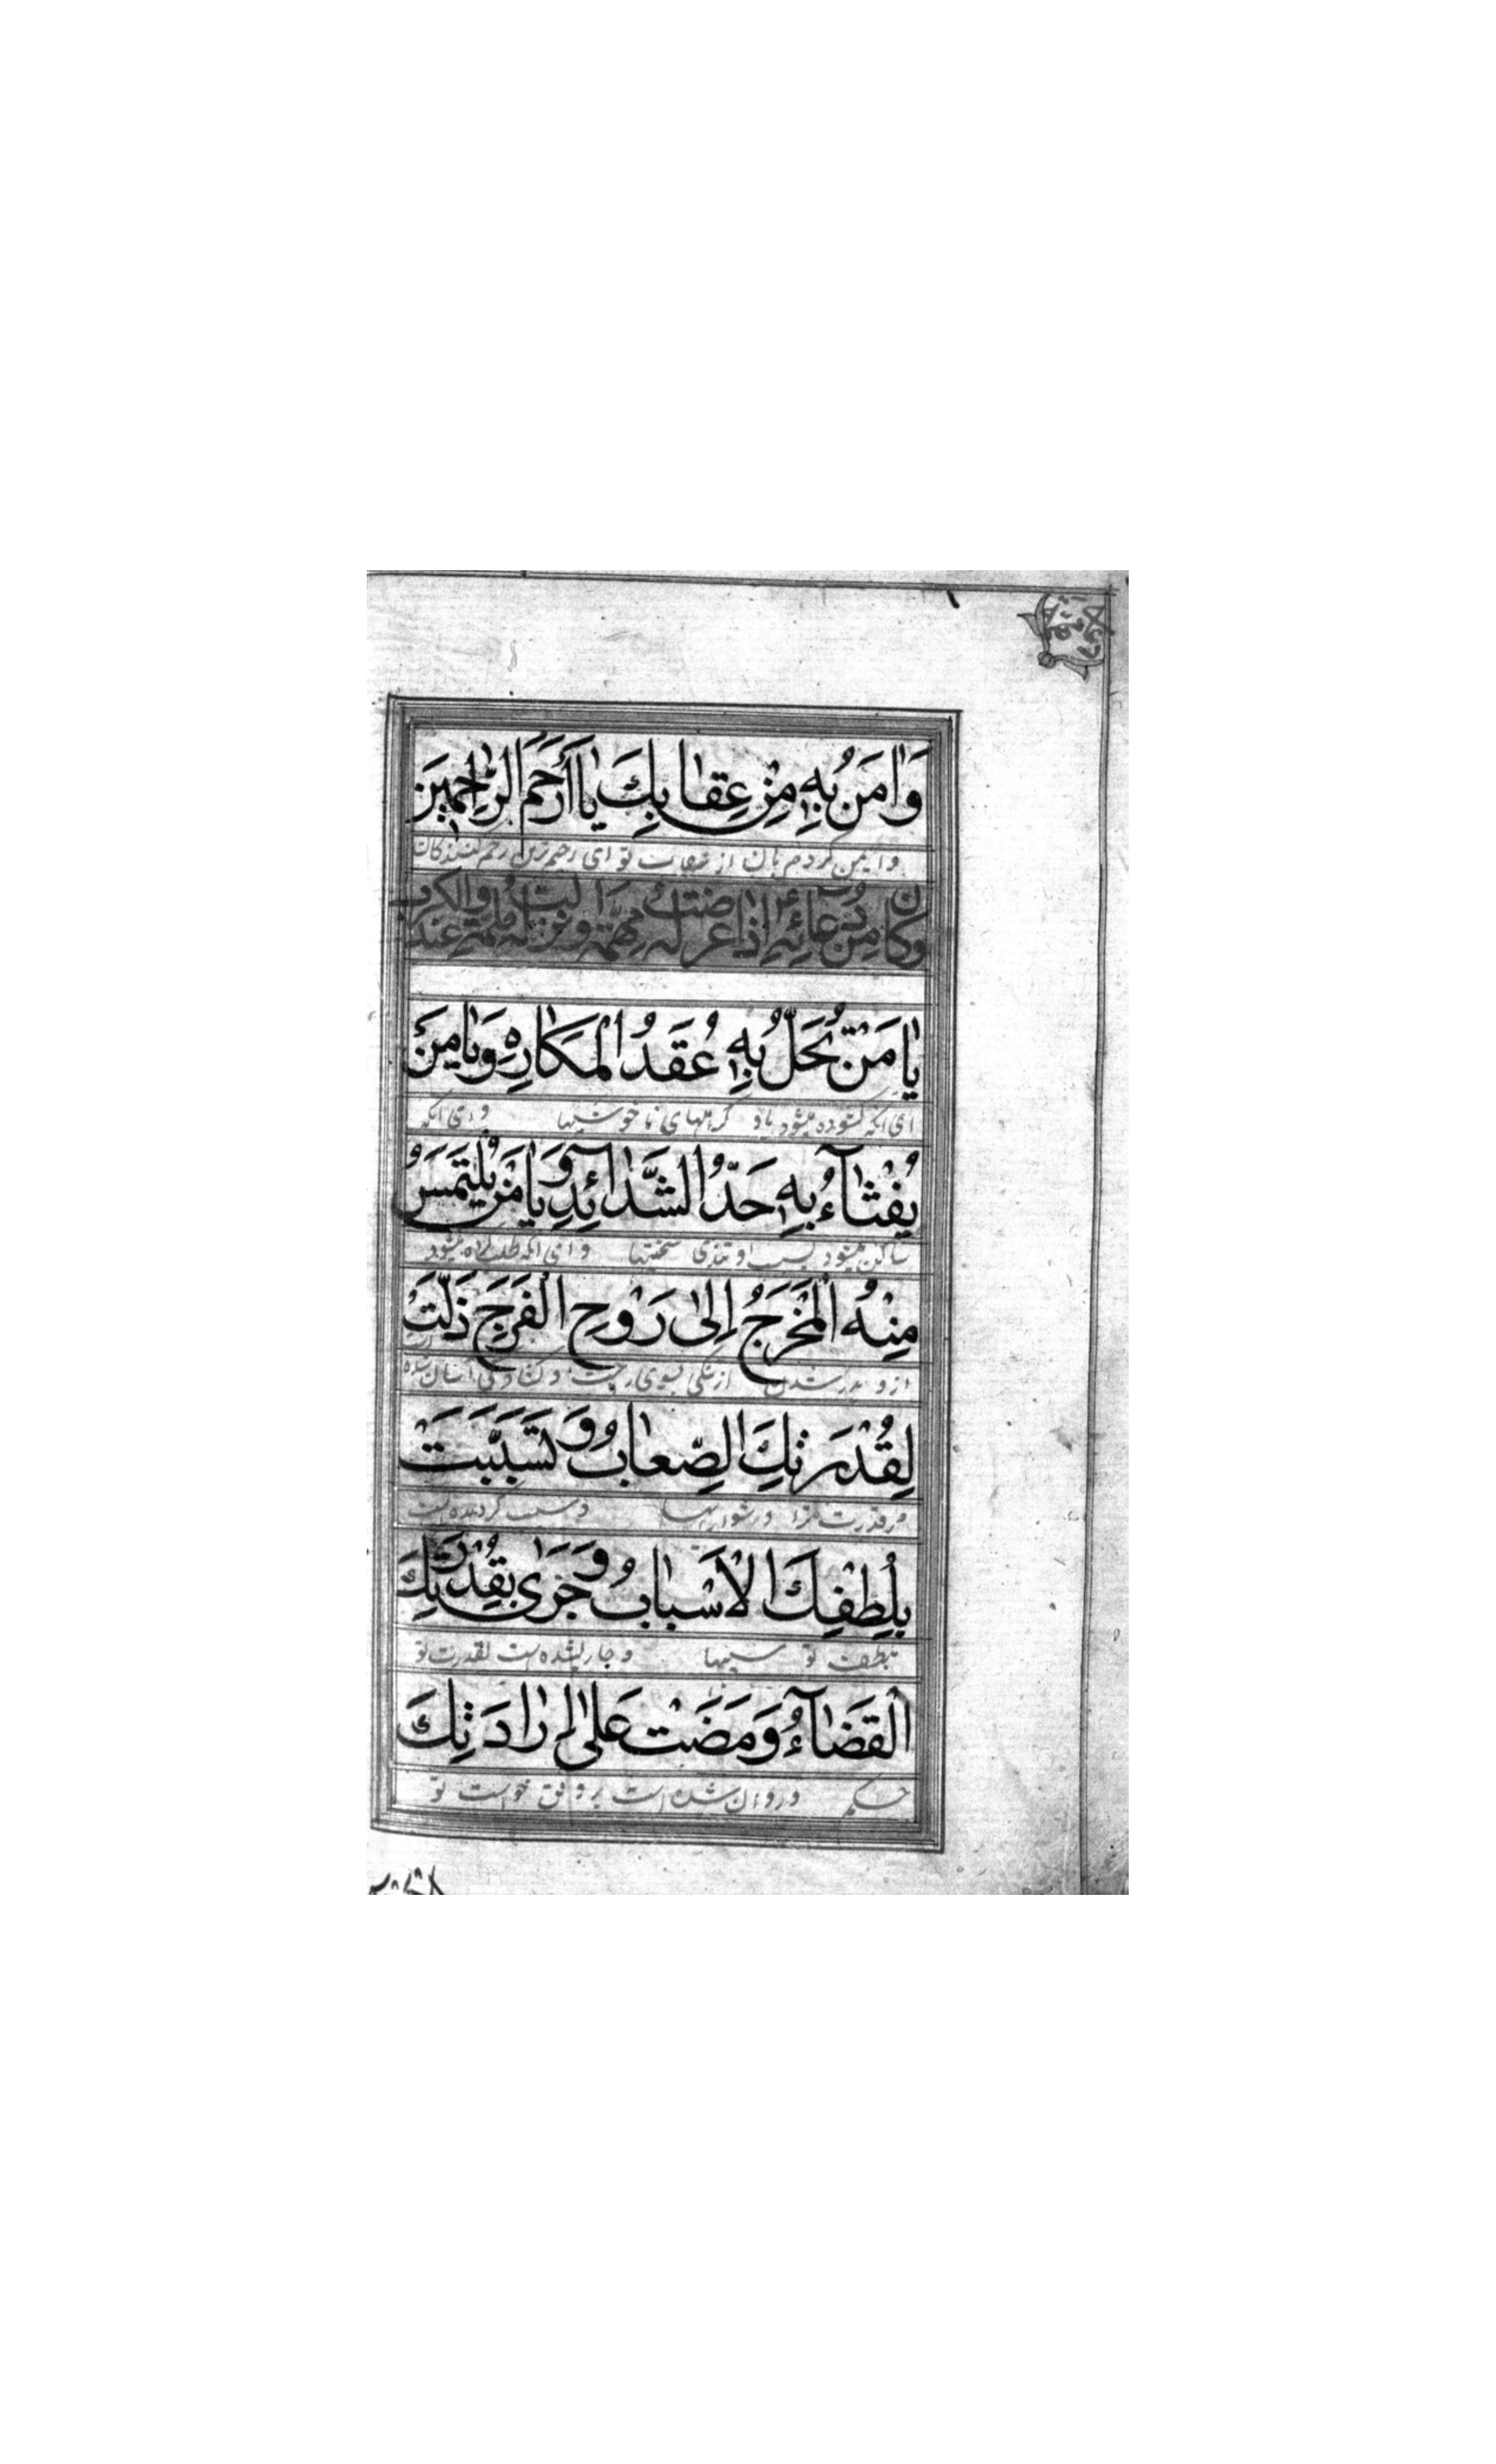 وَاٰمَنُ بِهِ مِنْ عِقٰابِكَ يٰا أَرْحَمَ الرّٰاحِمٖينَ
وایمن کردم بان از عقاب تو ای رحیم ترین رحم کنندکان
وكان من دعائه اذا عرضت له مهمة او نزلت به ملمة وعند الكرب
يٰا مَنْ تُحَلُّ بِهِ عُقَدُ الْمَكٰارِهِ وَيٰا مَنْ
ای آنکه کشوده میشود باو گرههای ناخوشیها وای آنکه
يُفْثٰآءُ بِهِ حَدُّ الشَّدٰآئِدِ وَيٰا مَنْ يُلْتَمَسُ
ساکن میشود بسبب او تندی سختیها وای آنکه طلب کرده میشود
مِنْهُ الْمَخْرَجُ إِلىٰ رَوْحِ الْفَرَجِ ذَلَّتْ
ازو بدر شدن از تنگی بسوی راحت و کشادگی آسان شده
لِقُدْرَتِكَ الصِّعٰابُ وَتَسَبَّبَتْ
مر قدرت ترا دشواریها و سبب گردیده است
بِلُطْفِكَ الْأَسْبٰابُ وَجَرىٰ بِقُدْرَتِكَ
بلطف تو سببها و جاری شده است بقدرت تو
الْقَضٰآءُ وَمَضَتْ عَلىٰ إِرٰادَتِكَ
حکم و روان شده است بر وفق خواست تو